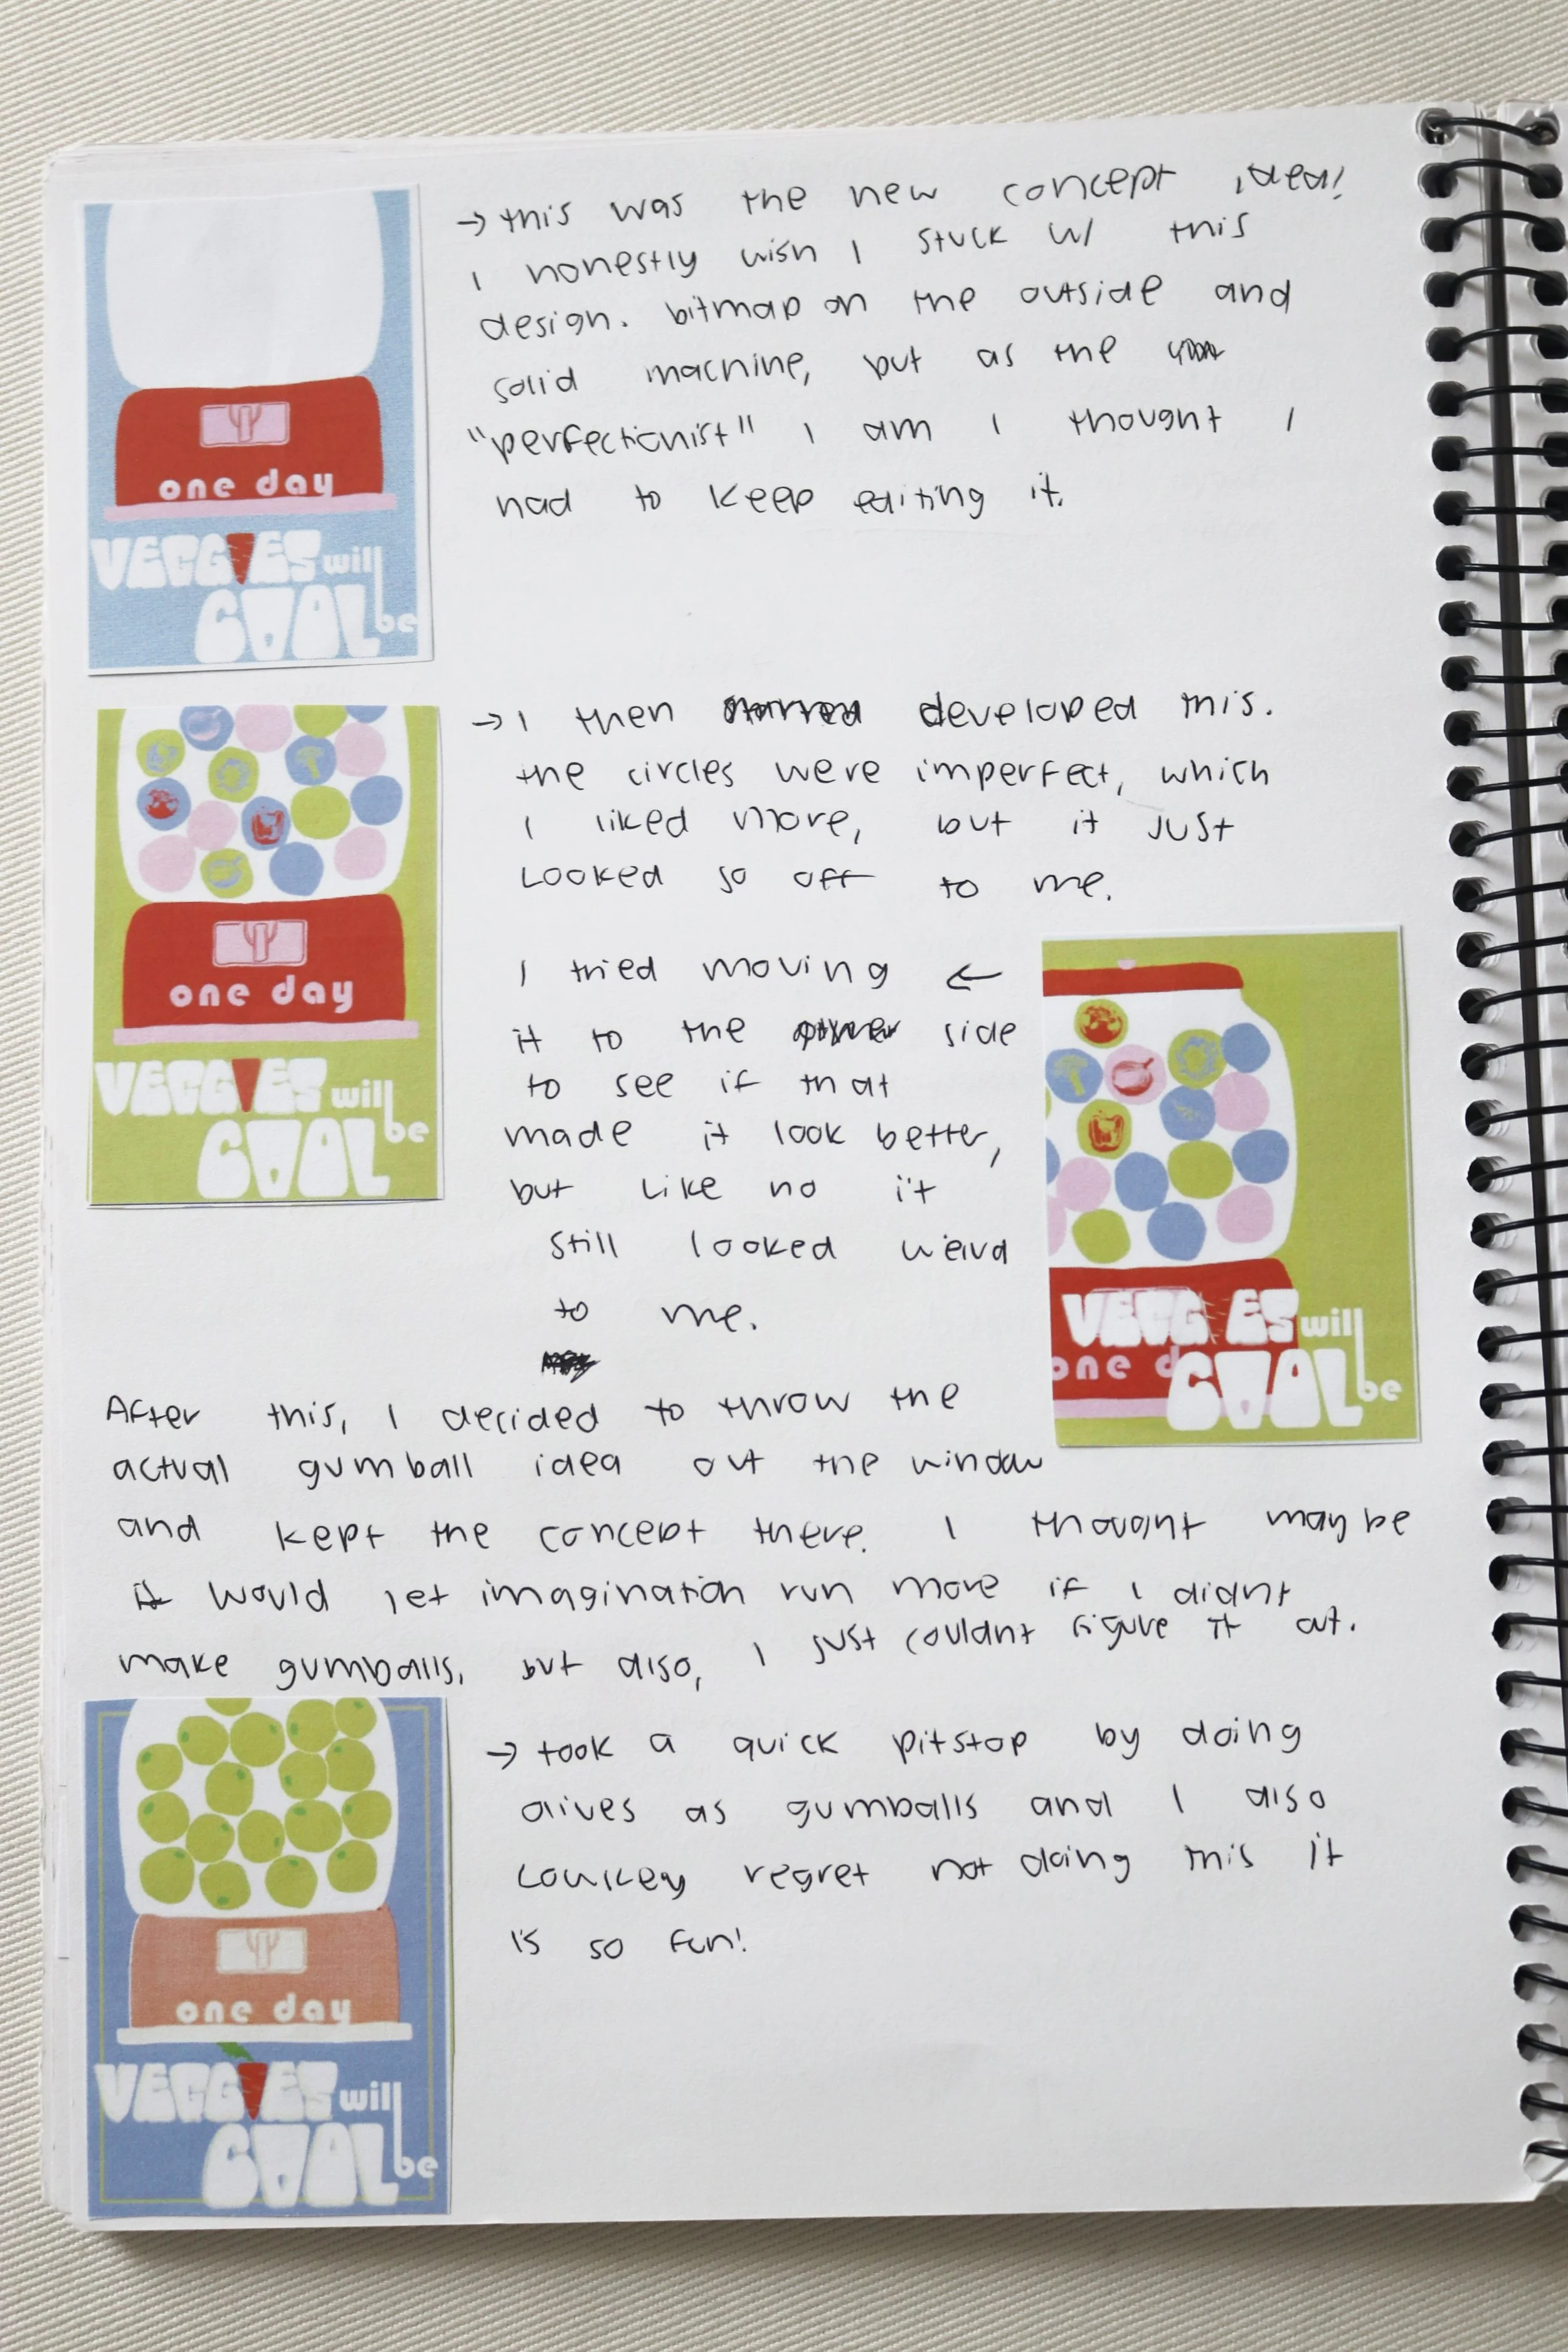 → this was the new concept idea!
I honestly wish I stuck w/ this
design. bitmap on the outside and
solid machine, but as the
"perfectionist" I am I thought I
had to keep editing it.
one day
VEGGIES will
COOL be
→ I then developed this.
the circles were imperfect, which
I liked more, but it just
looked so off to me.
one day
VEGGIES will
COOL be
I tried moving ←
it to the other side
to see if that
made it look better,
but like no it
still looked weird
to me.
VEGG ES will
one d
COOL be
After this, I decided to throw the
actual gumball idea out the window
and kept the concept there. I thought maybe
it would let imagination run more if I didnt
make gumballs, but also, I just couldnt figure it out.
→ took a quick pitstop by doing
olives as gumballs and I also
lowkey regret not doing this it
is so fun!
one day
VEGGIES will
COOL be